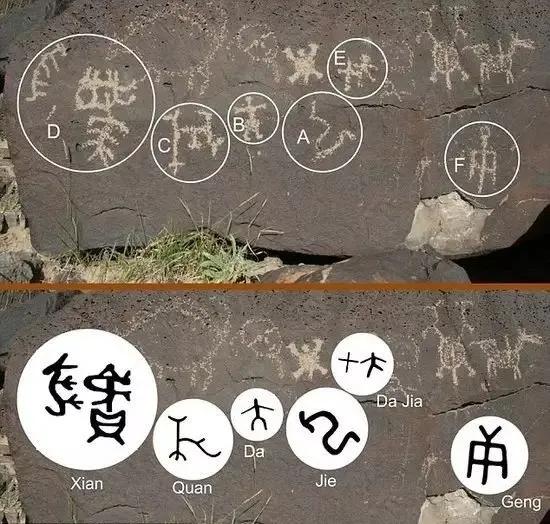 E
D
C
B
A
F
Da Jia
Da
Xian
Quan
Jie
Geng